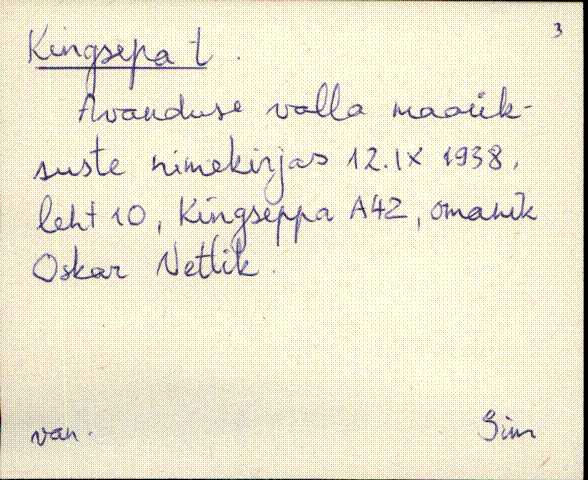 3
Kingsepa t.
Avanduse valla maaük-
suste nimekirjas 12.IX 1938,
leht 10, Kingseppa A42, omanik
Oskar Netlik.
van. Sim